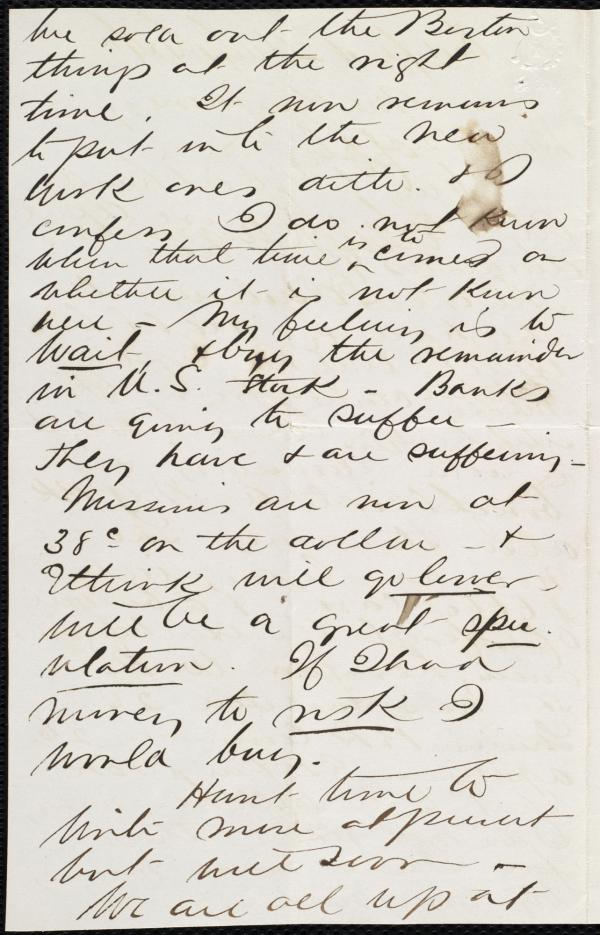 We sold out the Boston
things at the right
time. It now remains
to put into the New
York ones ditto. & I
confess I do not know
when that time is to comes or
whether it is not know
here – My feeling is to
wait, & buy the remainder
in U.S. Stock – Banks
are going to suffer –
they have & are suffering –
Missouris are now at
38c on the dollar – &
I think will go lower –
will be a great spec
ulation. If I had
money to risk I
would buy.
Havnt time to
write more at present
but will soon –
We are all up at